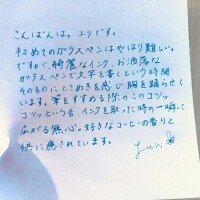 こんばんは。ユリです。
初めてのガラスペンはやはり難しい。
ですが、綺麗なインク、お洒落な
ガラスペンで文字を書くという時間
そのものにときめきを感じ胸を踊らせて
います。筆をすすめる際のこのコツッ
コツッという音、インクを取った時の一瞬に
広がる無心。好きなコーヒーの香りと
供に癒されています。
yuri